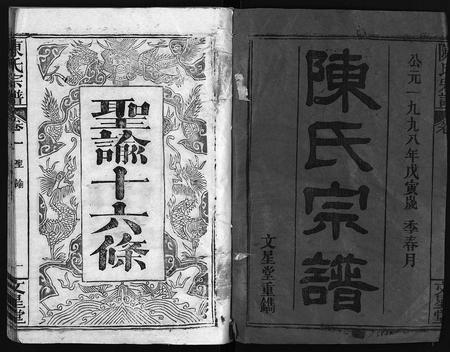 公元一九九八年戊寅歲 季春月
陳氏宗譜
文星堂重鐫
聖諭十六條
陳氏宗譜
卷一
聖諭
一
文星堂